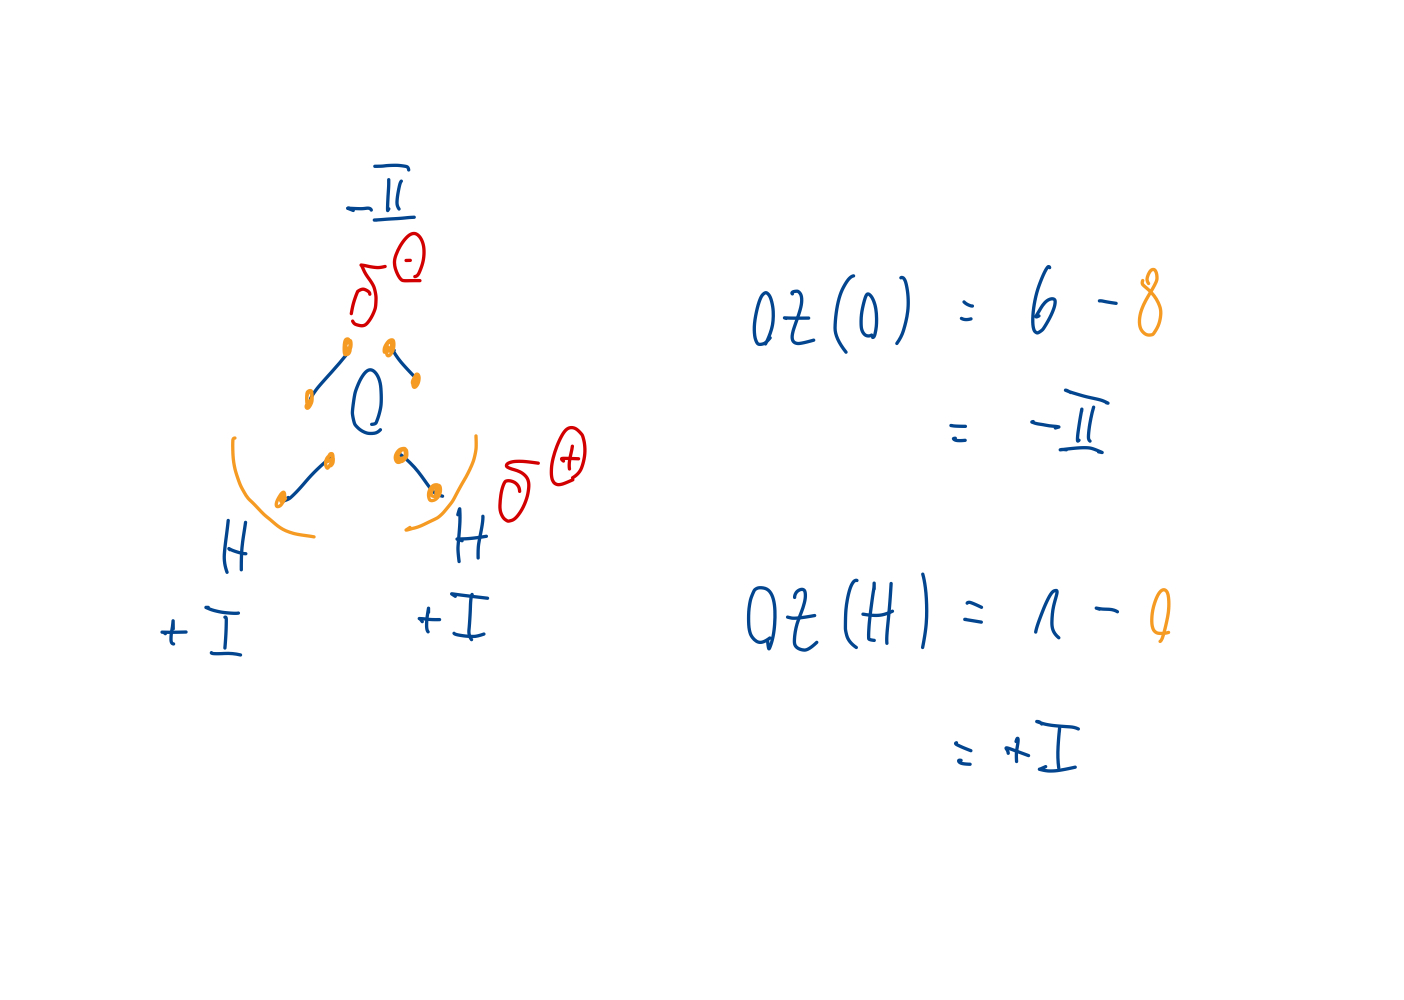 -II
δ⊖
O
δ⊕
H H
+I +I
OZ(O) = 6 - 8
= -II
OZ(H) = 1 - 0
= +I